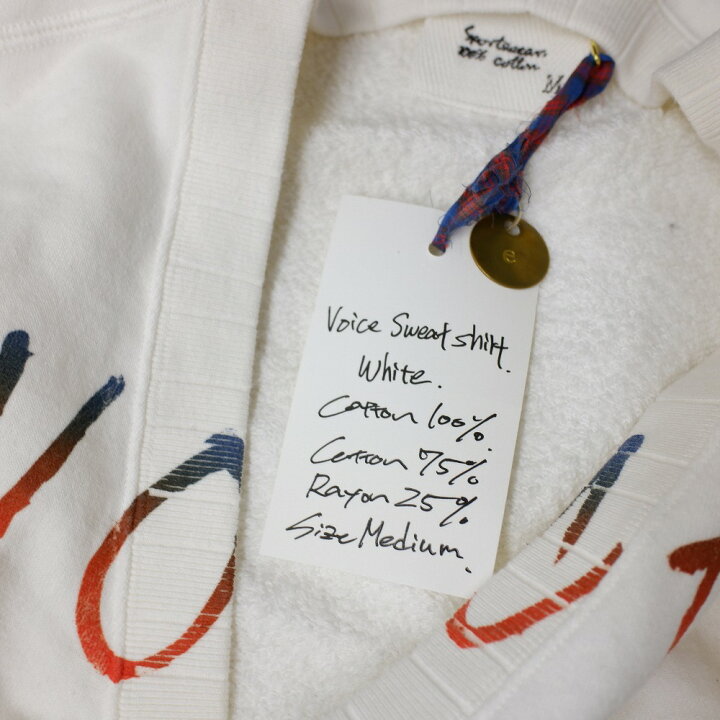 Sportswear
100% cotton
e
Voice Sweat shirt.
White.
Cotton 100%.
Cotton 75%
Rayon 25%.
Size Medium.